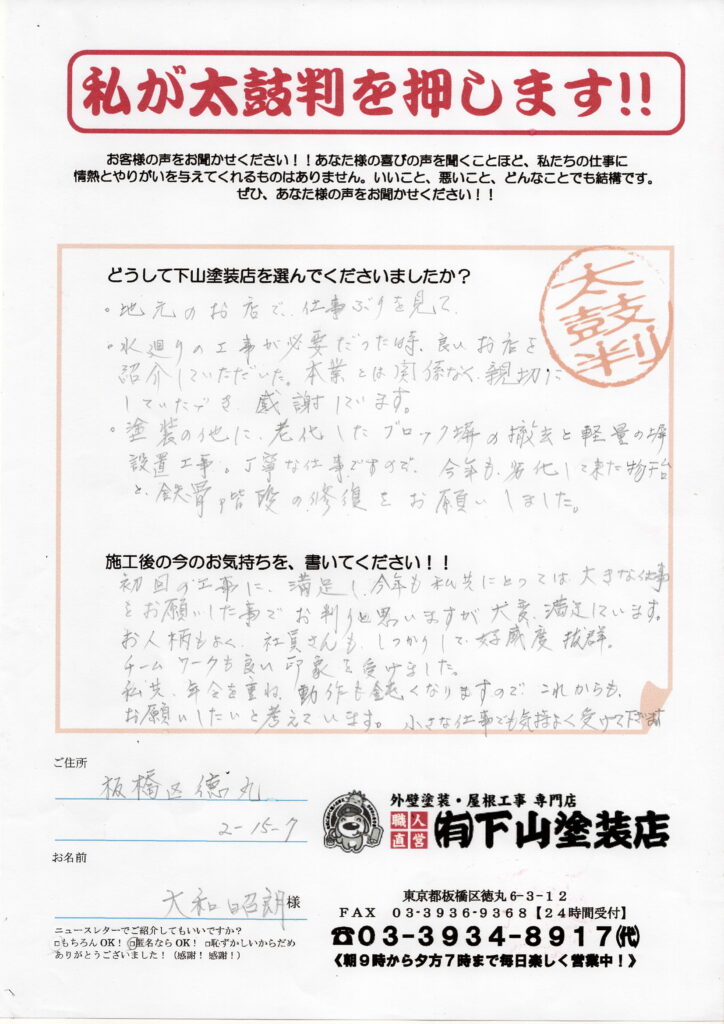 私が太鼓判を押します!!
お客様の声をお聞かせください！！あなた様の喜びの声を聞くことほど、私たちの仕事に
情熱とやりがいを与えてくれるものはありません。いいこと、悪いこと、どんなことでも結構です。
ぜひ、あなた様の声をお聞かせください！！
太鼓判
どうして下山塗装店を選んでくださいましたか？
・地元のお店で、仕事ぶりを見て
・水廻りの工事が必要だった時、良いお店を
紹介していただいた。本業とは関係なく、親切に
していただき、感謝しています。
・塗装の他に、老化したブロック塀の撤去と軽量の塀
設置工事。丁寧な仕事ですので、今年も、劣化して来た物干台
と、鉄骨階段の修復をお願いしました。
施工後の今のお気持ちを、書いてください！！
初回の工事に、満足し、今年も私共にとっては大きな仕事
をお願いした事でお判りと思いますが大変、満足しています。
お人柄もよく、社員さんも、しっかりして、好感度抜群。
チームワークも良い印象を受けました。
私共、年令を重ね、動作も鈍くなりますので、これからも、
お願いしたいと考えています。小さな仕事でも気持よく受けて下さいます
ご住所
板橋区徳丸
2-15-7
お名前
大和昭朗様
ニュースレターでご紹介してもいいですか？
□もちろんOK！ □匿名ならOK！ □恥ずかしいからだめ
ありがとうございました！（感謝！感謝！）
外壁塗装・屋根工事 専門店
職人直営 ㈲下山塗装店
東京都板橋区徳丸6-3-12
FAX 03-3936-9368【24時間受付】
☎03-3934-8917㈹
《朝9時から夕方7時まで毎日楽しく営業中！》